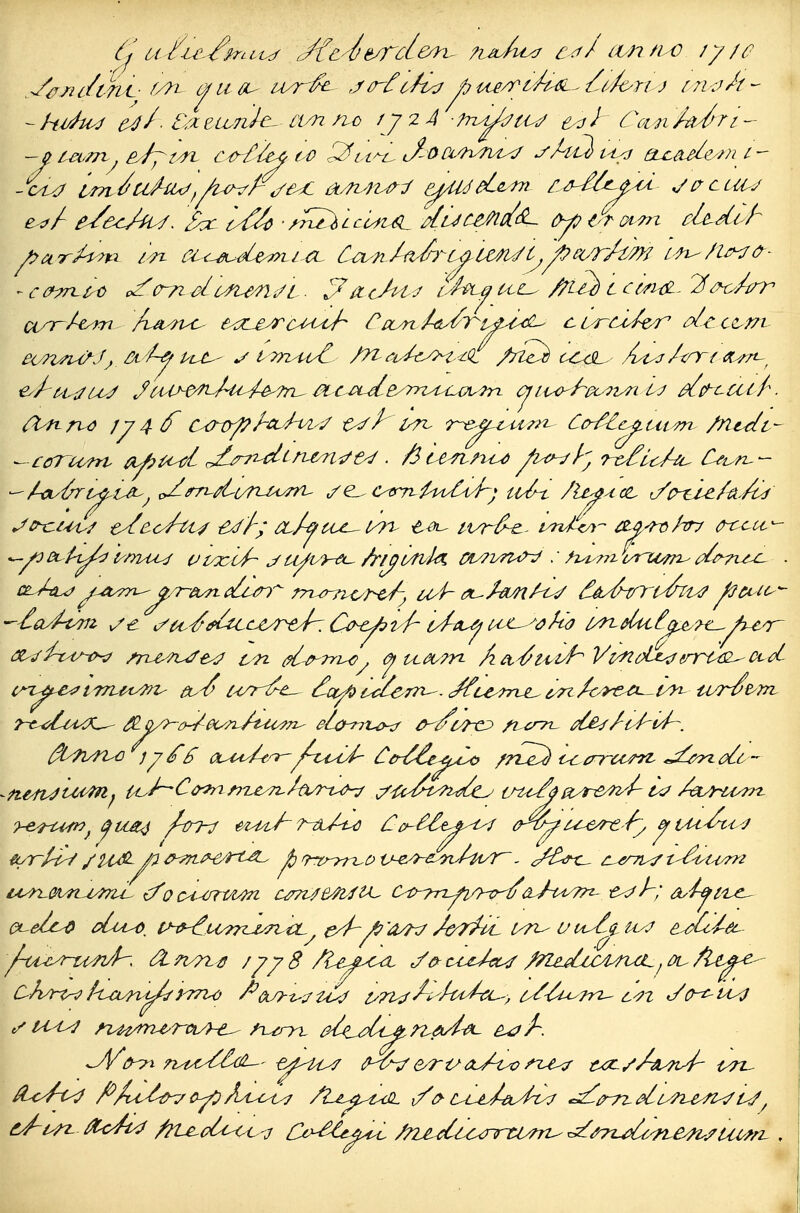 Gulielmus Heberden natus est anno 1710
Londini; in qua urbe solitis pueritiæ literis insti-
-tutus est. Exeunte anno 1724 missus est Cantabri-
-giam, et, in collegio Divi Joannis studiis academi-
-cis imbutus, post sex annos ejusdem collegii socius
est electus. Ex illo medicinæ discendæ operam dedit
partim in academia Cantabrigiensi, partim in noso-
-comio Londinensi. Factus itaque medicinæ Doctor
artem hanc exercuit Cantabrigiæ circiter decem
annos, atque simul materiæ medicæ historiam,
et usus Juventutem academicam quotannis docuit.
Anno 1746 cooptatus est in regium Collegium medi-
-corum apud Londinenses. Biennio post, relicta Can-
-tabrigia, Londinum se contulit; ubi Regiæ Societatis
socius electus est; atque in ea urbe inter ægrotos occu-
-patissimus vixit supra triginta annos: nimirum donec
ætas jam grandior moneret, ut a tantis laboribus pau-
-latim se subduceret. Coepit itaque otio indulgere per
æstivos menses in domo, quam habuit Vindesoriæ ad
vigesimum ab urbe lapidem. Hieme interea in urbem
redux ægrotantium domos obire non destitit.
Anno 1766 autor fuit Collegio medicorum Londi-
-nensium, ut Commentarios subinde vulgarent is tarum
rerum, quas fors aut ratio Collegis objiceret, quibus
artis suæ pomoeria promoverentur. Hoc consilium
unanimi Sociorum consensu comprobatum est; atque
adeo duo volumina, et pars tertii in vulgus edita
fuerunt. Anno 1778 Regia Societas Medicinæ, a Rege
Christianissimo Parisiis instituta, illum in Sociis
suis numerare non dedignata est.
Non nullæ ejus observationes extant in
Actis Philosophicis Regiæ Societatis Londinensis,
et in Actis medicis Collegii medicorum Londinensium.